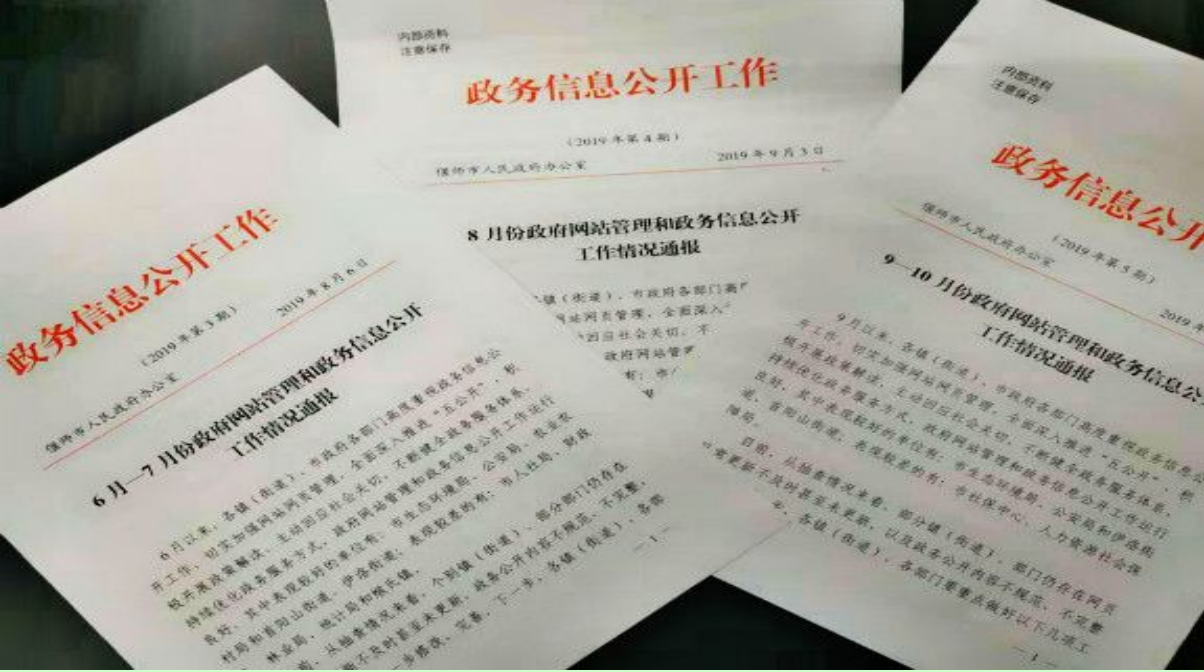 政务信息公开工作
（2019年第3期）
偃师市人民政府办公室 2019年8月6日
6月—7月份政府网站管理和政务信息公开
工作情况通报
6月以来，各镇（街道）、市政府各部门高度重视政务信息公
开工作，切实加强网站网页管理，全面深入推进“五公开”，积
极开展政策解读，主动回应社会关切，不断健全政务服务体系，
持续优化政务服务方式，政府网站管理和政务信息公开工作运行
良好。其中表现较好的单位有：市生态环境局、公安局、农业农
村局和首阳山街道、伊洛街道；表现较差的有：市人社局、财政
林业局、统计局和缑氏镇。
从抽查情况来看，个别镇（街道）、部分部门仍存在
不及时甚至未更新，政务公开内容不规范、不完整，
步修改、完善。下一步，各镇（街道）、各部
—1—
内部资料
注意保存
政务信息公开工作
（2019年第4期）
偃师市人民政府办公室 2019年9月3日
8月份政府网站管理和政务信息公开
工作情况通报
镇（街道）、市政府各部门高
网站网页管理，全面深入
回应社会关切，不
政府网站管
有：市
内部资料
注意保存
政务信息公开
（2019年第5期）
偃师市人民政府办公室 2019
9—10月份政府网站管理和政务信息公
工作情况通报
9月以来，各镇（街道）、市政府各部门高度重视政务信息
开工作，切实加强网站网页管理，全面深入推进“五公开”，积
极开展政策解读，主动回应社会关切，不断健全政务服务体系，
持续优化政务服务方式，政府网站管理和政务信息公开工作运行
良好。其中表现较好的单位有：市生态环境局、公安局和伊洛街
道、首阳山街道；表现较差的有：市社保中心、人力资源社会保
障局。
目前，从抽查情况来看，部分镇（街道）、部门仍存在网页
更新不及时甚至未更新，以及政务公开内容不规范、不完整
各镇（街道）、各部门要重点做好以下几项工
—1—